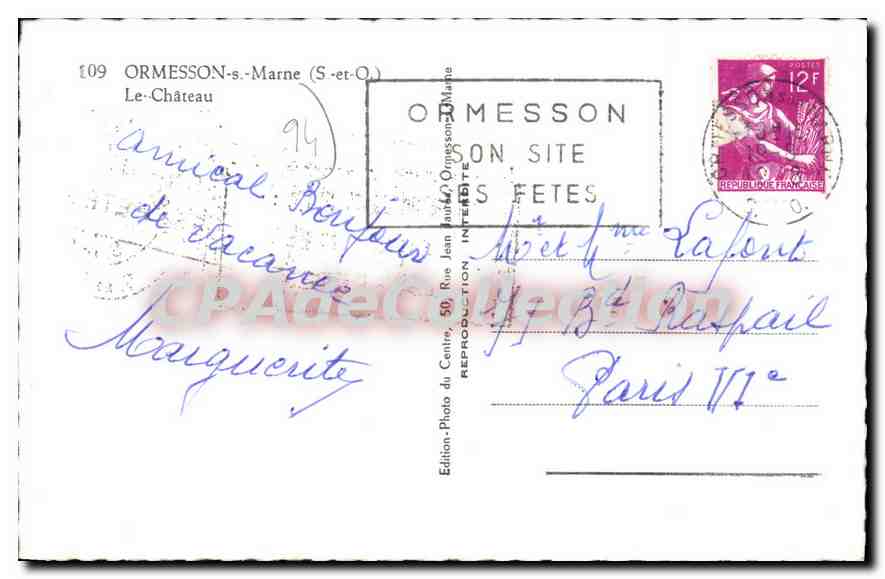 109 ORMESSON-s.-Marne (S.-et-O.)
Le Château
94
Amical Bonjour
de Vacances
Marguerite
Edition-Photo du Centre, 50, Rue Jean Jaurès, Ormesson-s-Marne
REPRODUCTION INTERDITE
ORMESSON
SON SITE
SES FETES
POSTES
12F
REPUBLIQUE FRANÇAISE
Mr et Mme Lafont
Bd Raspail
Paris VIe
CPAdeCollection